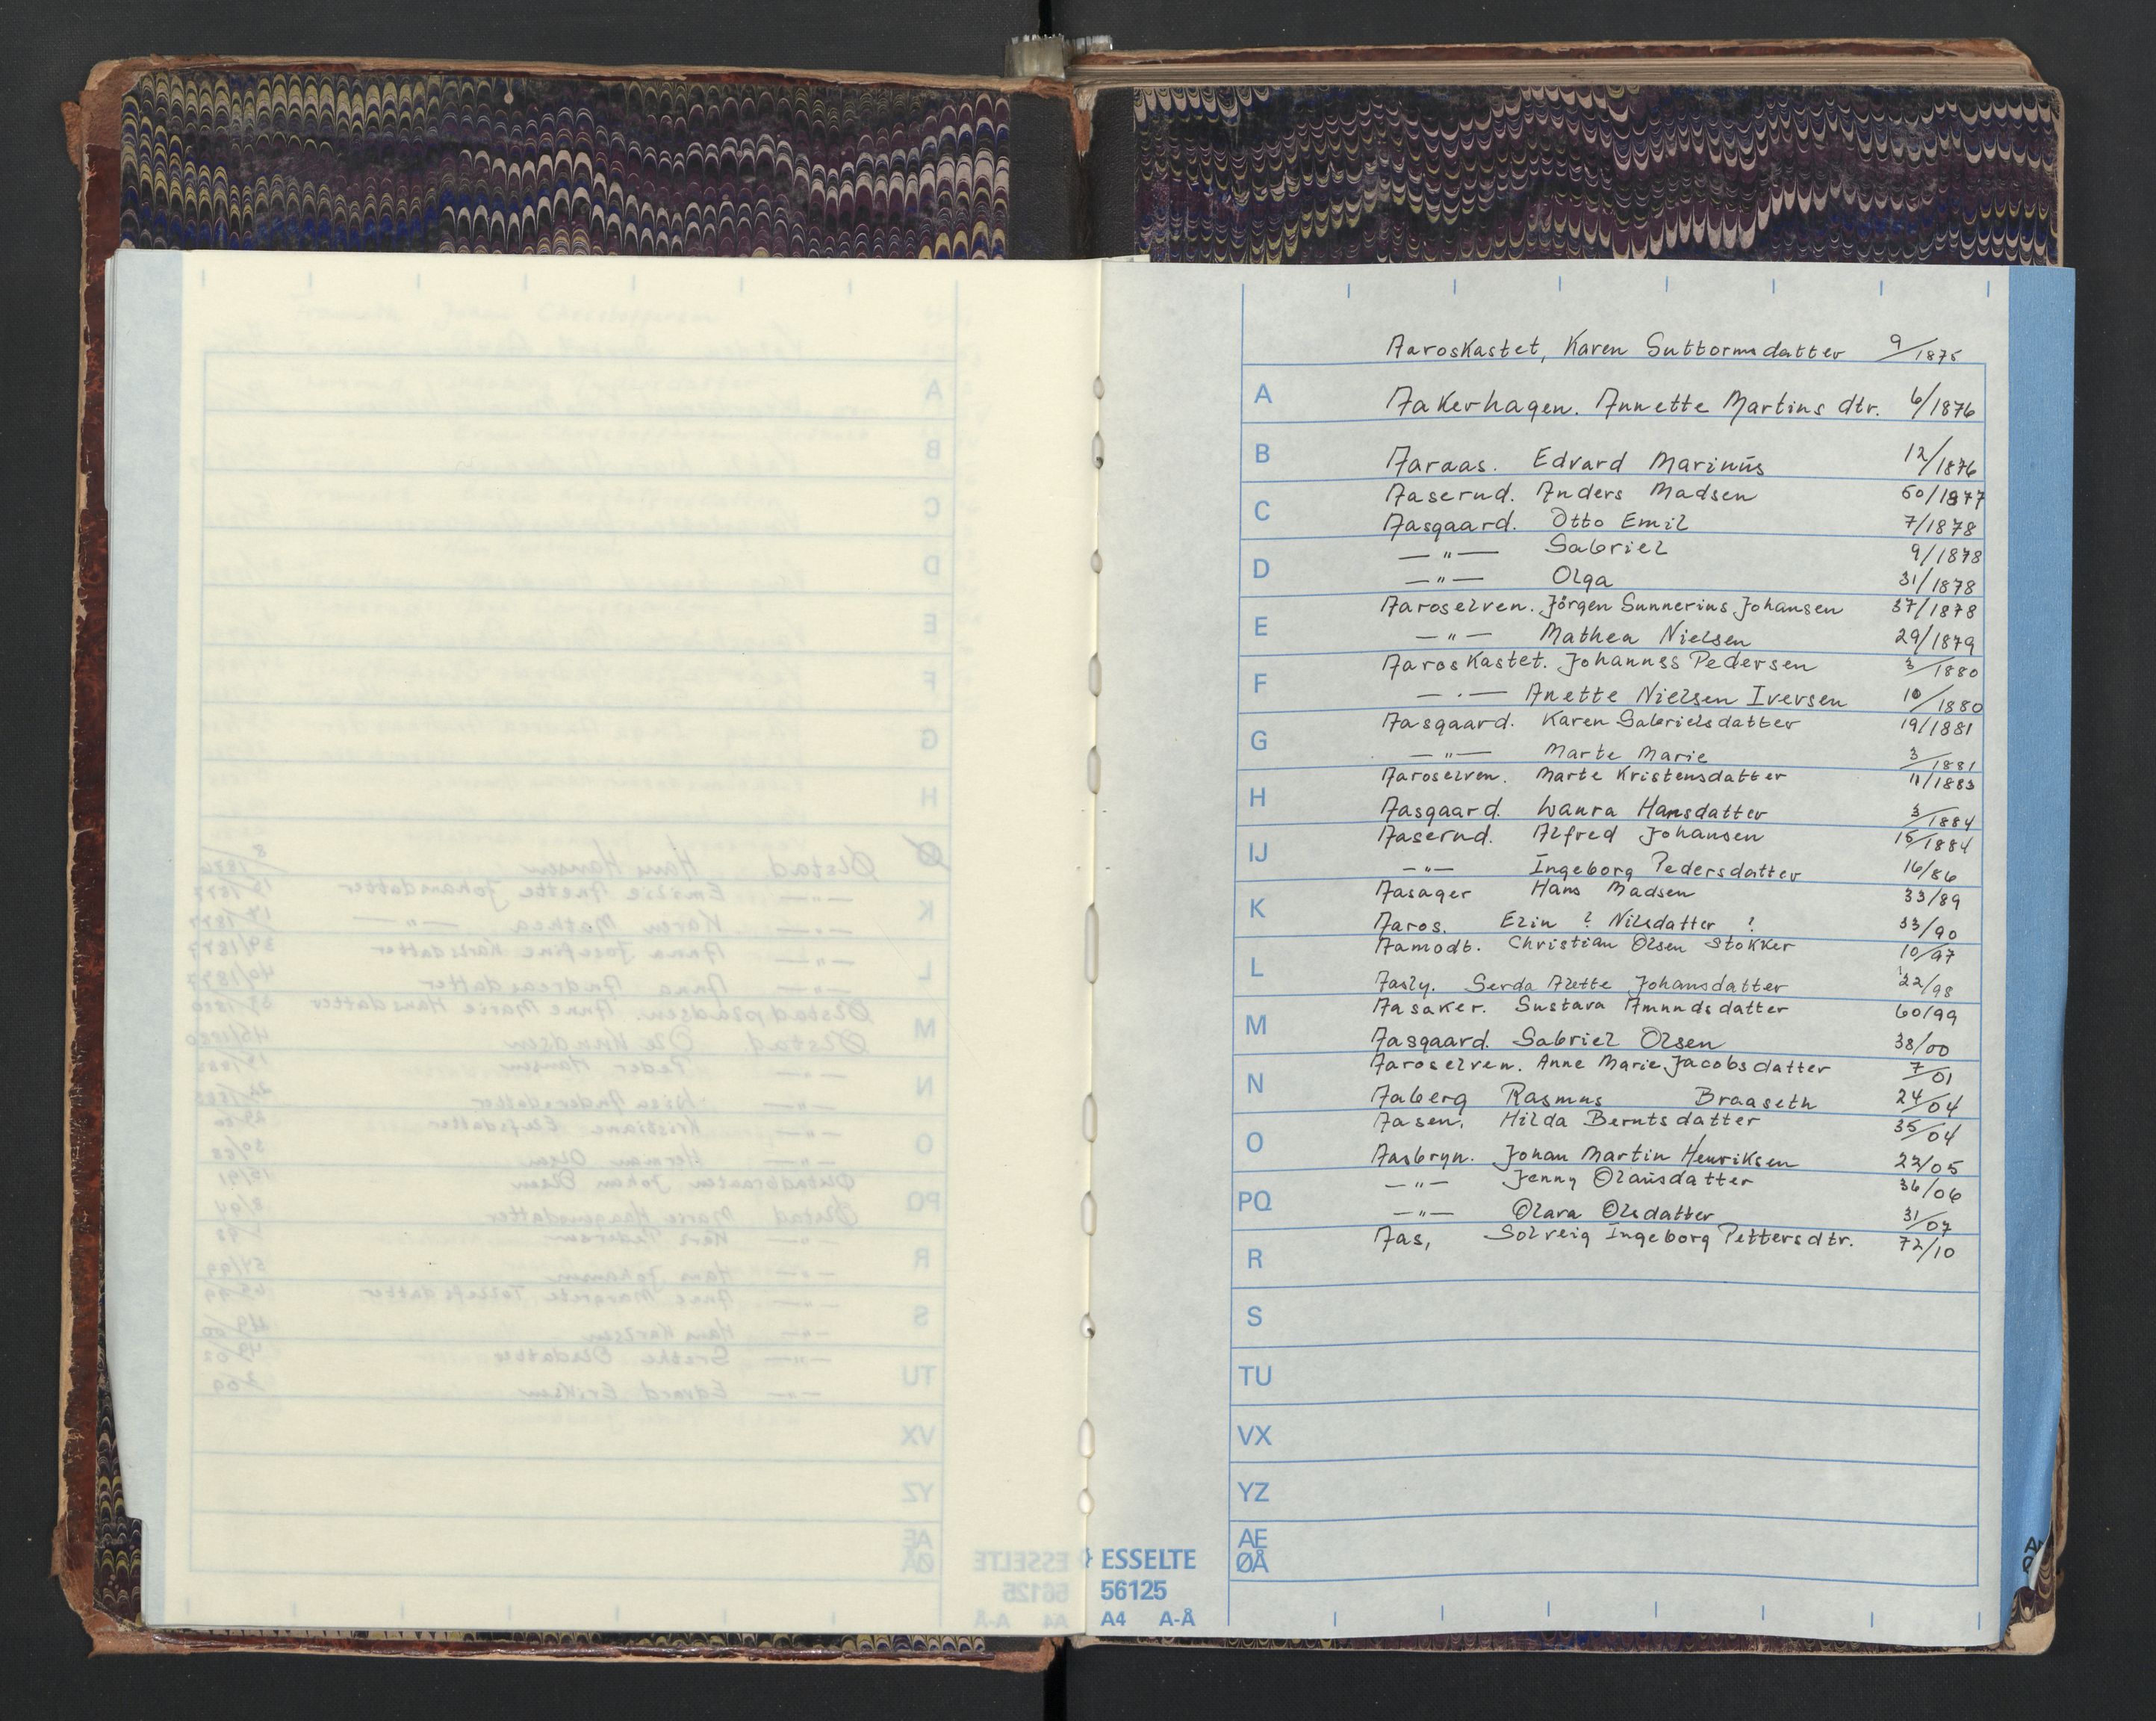 Aaroskastet, Karen Guttormsdatter 9/1875
A Aakerhagen. Annette Martins dtr. 6/1876
B Aaraas. Edvard Marinus 12/1876
Aaserud. Anders Madsen 50/1877
C Aasgaard. Otto Emil 7/1878
—"— Gabriel 9/1878
D —"— Olga 31/1878
Aaroselven. Jörgen Gunnerius Johansen 37/1878
E —"— Mathea Nielsen 29/1879
Aaroskastet. Johannes Pedersen 3/1880
F —.— Anette Nielsen Iversen 10/1880
Aasgaard. Karen Gabrielsdatter 19/1881
G —"— Marte Marie 3/1881
Aaroselven. Marte Kristensdatter 11/1883
H Aasgaard. Laura Hansdatter 3/1884
Aaserud. Alfred Johansen 15/1884
IJ —"— Ingeborg Pedersdatter 16/86
Aasager Hans Madsen 33/89
K Aaros. Elin ? Nilsdatter ? 33/90
Aamodt. Christian Olsen Stokker 10/97
L Aasly. Gerda Alette Johansdatter 22/98
Aasaker. Gustava Amundsdatter 60/99
M Aasgaard. Gabriel Olsen 38/00
Aaroselven. Anne Marie Jacobsdatter 7/01
N Aaberg Rasmus Braaseth 24/04
Aasen. Hilda Berntsdatter 35/04
O Aasbryn. Johan Martin Henriksen 22/05
—"— Jenny Olausdatter 36/06
PQ —"— Olava Olsdatter 31/07
Aas, Solveig Ingeborg Pettersdtr. 72/10
R
S
TU
VX
YZ
AE
ØÅ
ESSELTE
56125
A4 A-Å